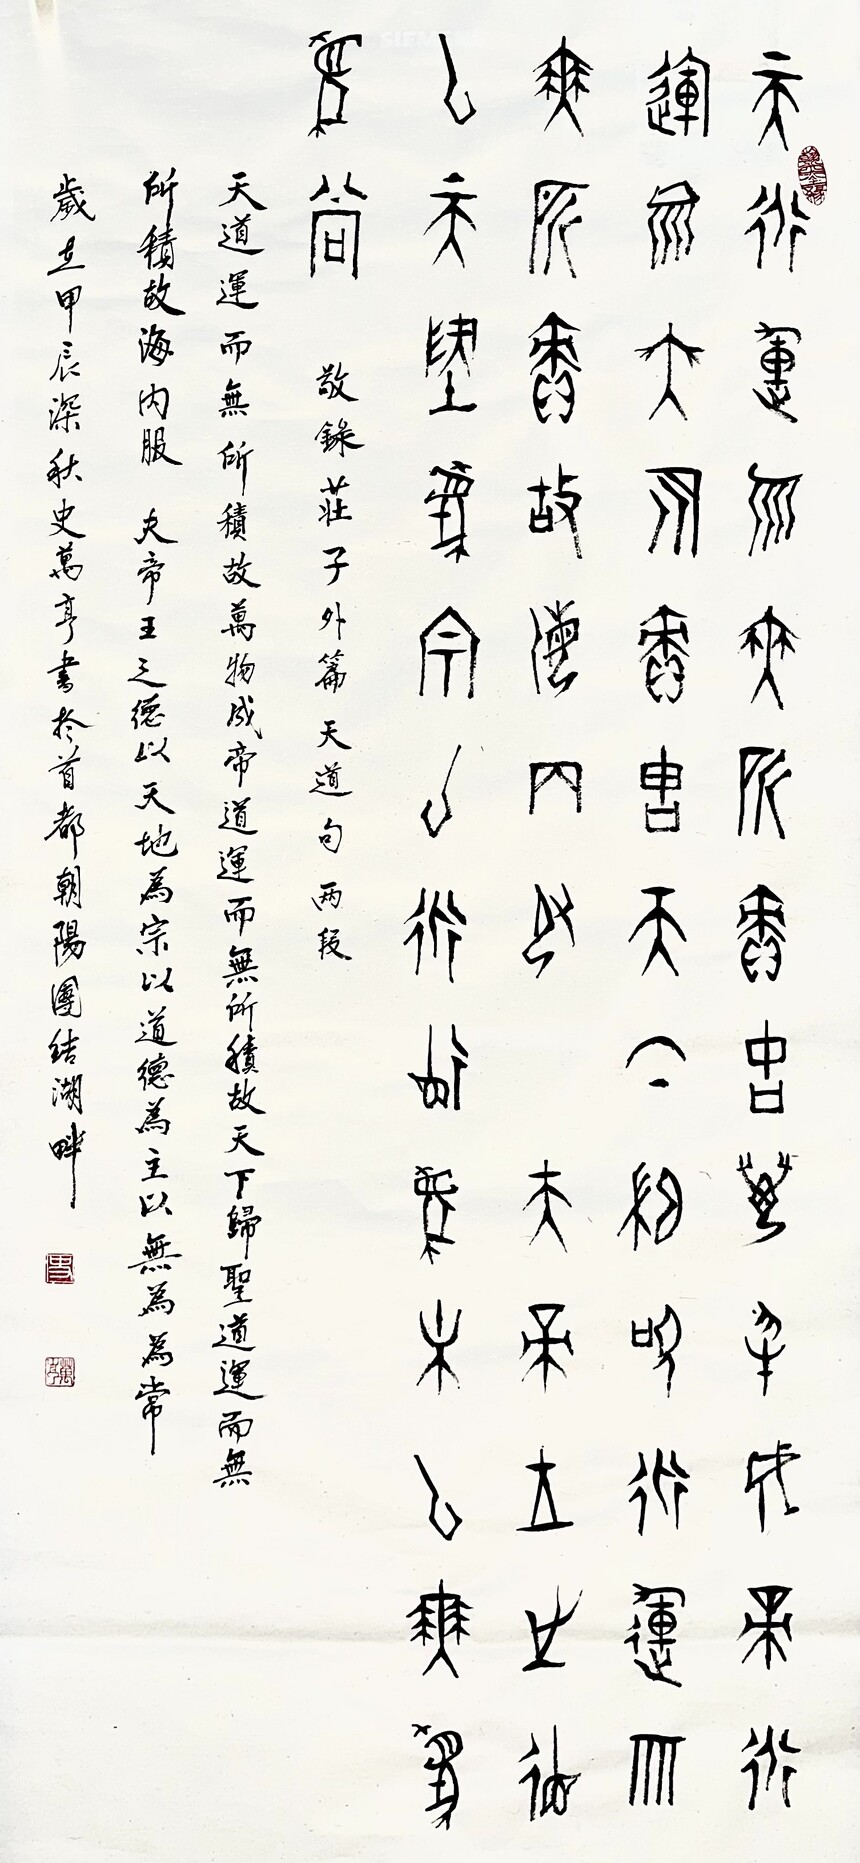 天道運而無所積故萬物成帝道
運而無所積故天下歸聖道運而
無所積故海内服 夫帝王之德
以天地為宗以道德為主以無為
為常
敬錄莊子外篇天道句兩段
天道運而無所積故萬物成帝道運而無所積故天下歸聖道運而無
所積故海内服 夫帝王之德以天地為宗以道德為主以無為為常
歲在甲辰深秋史萬亨書於首都朝陽團結湖畔
史